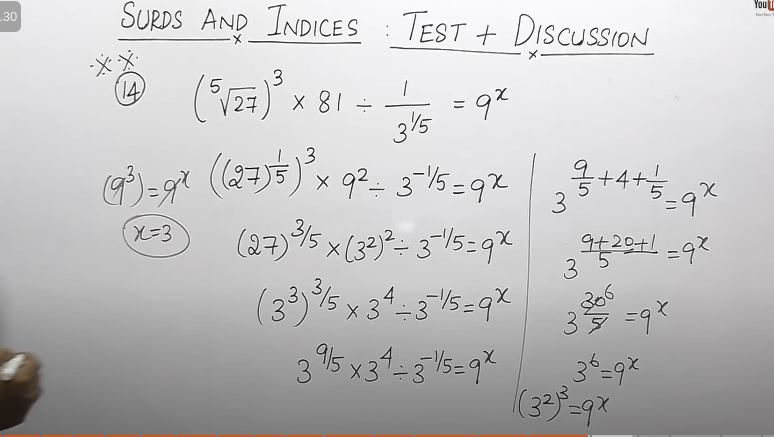 .30
YouT
SURDS AND INDICES : TEST + DISCUSSION
(14) (⁵√27)³ × 81 ÷ 1/3^(1/5) = 9^x
((27)^(1/5))³ × 9² ÷ 3^(-1/5) = 9^x
(27)^(3/5) × (3²)² ÷ 3^(-1/5) = 9^x
(3³)^(3/5) × 3⁴ ÷ 3^(-1/5) = 9^x
3^(9/5) × 3⁴ ÷ 3^(-1/5) = 9^x
3^(9/5 + 4 + 1/5) = 9^x
3^((9+20+1)/5) = 9^x
3^(30/5) 6 = 9^x
3⁶ = 9^x
(3²)³ = 9^x
(9³) = 9^x
x = 3